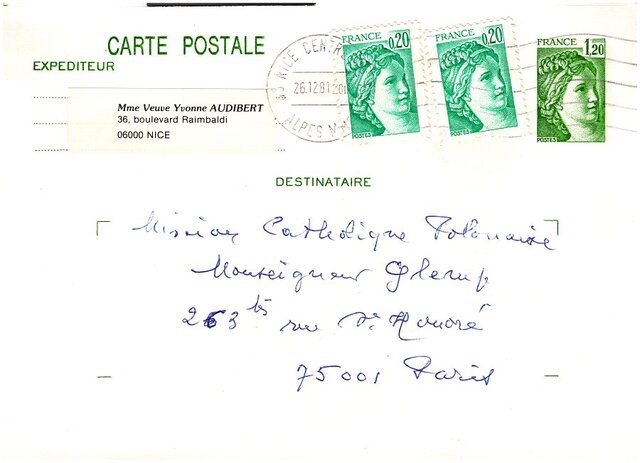 CARTE POSTALE
EXPEDITEUR
Mme Veuve Yvonne AUDIBERT
36, boulevard Raimbaldi
06000 NICE
NICE CENTR
26.12.81
ALPES M
FRANCE 0,20
POSTES
FRANCE 0,20
POSTES
FRANCE 1,20
POSTES
DESTINATAIRE
Mission Catholique Polonaise
Monseigneur
263 bis rue St Honoré
75001 Paris